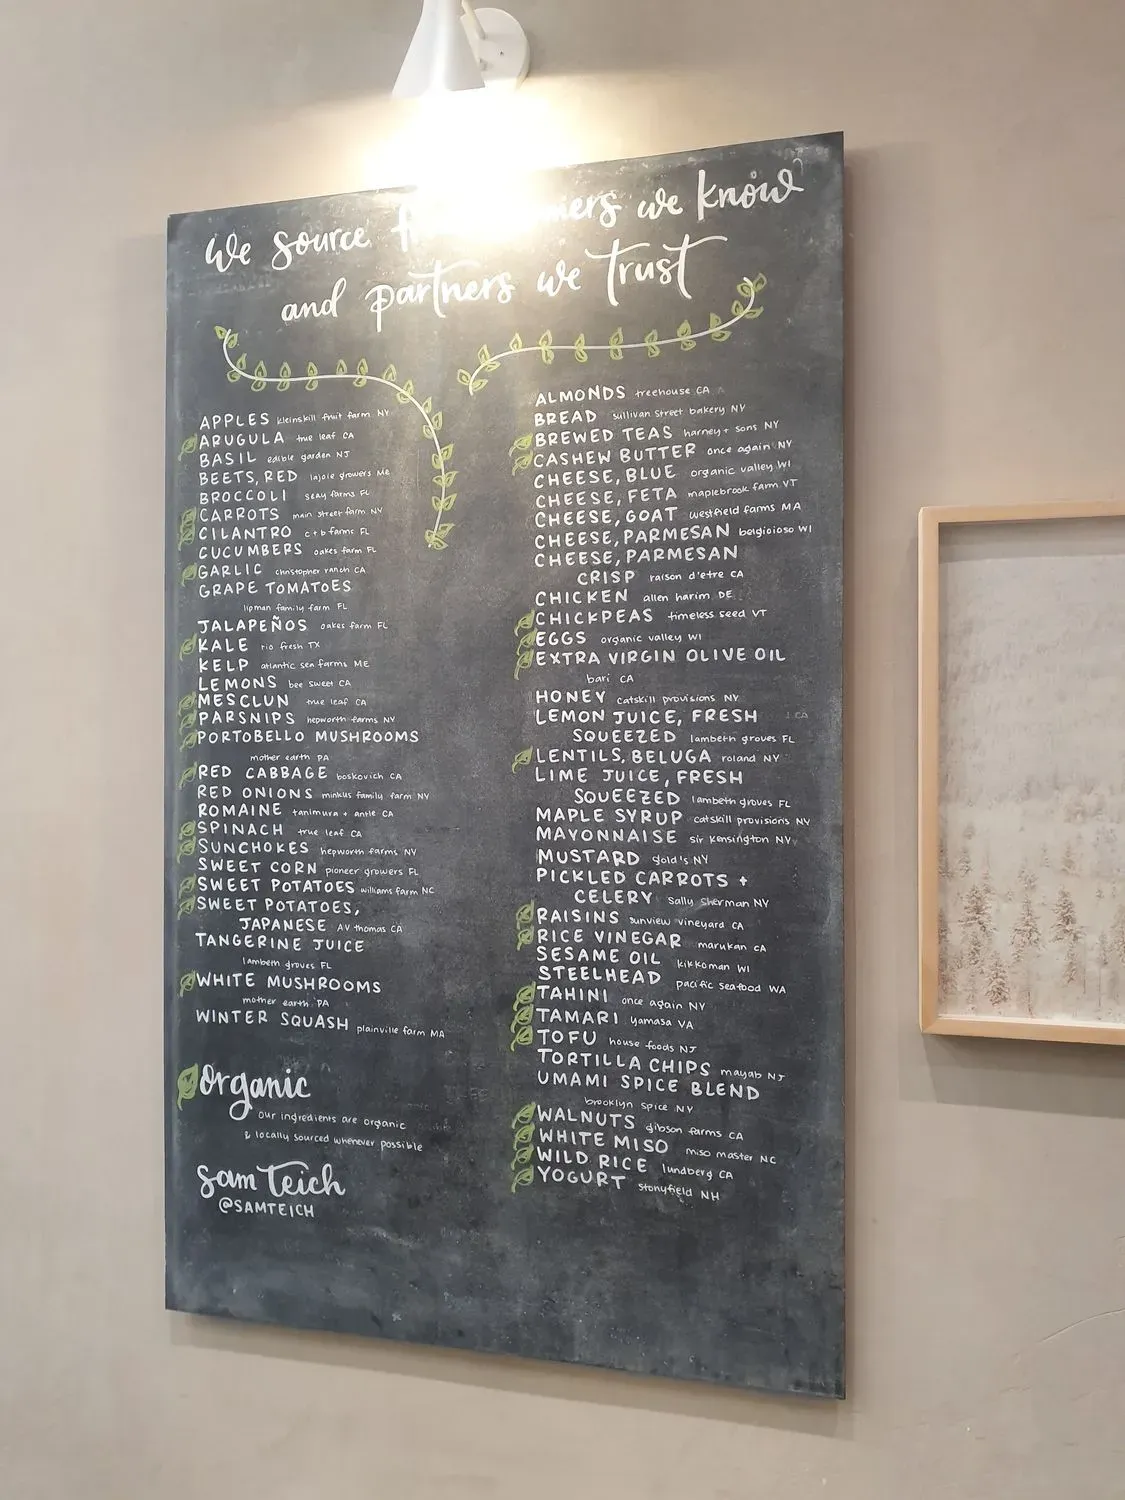 we source we know
and partners we trust
APPLES kleinskill fruit farm NY
ARUGULA true leaf CA
BASIL edible garden NJ
BEETS, RED lajoie growers ME
BROCCOLI seay farms FL
CARROTS main street farm NY
CILANTRO c+b farms FL
CUCUMBERS oakes farm FL
GARLIC christopher ranch CA
GRAPE TOMATOES
lipman family farm FL
JALAPEÑOS oakes farm FL
KALE rio fresh TX
KELP atlantic sea farms ME
LEMONS bee sweet CA
MESCLUN true leaf CA
PARSNIPS hepworth farms NY
PORTOBELLO MUSHROOMS
mother earth PA
RED CABBAGE boskovich CA
RED ONIONS minkus family farm NY
ROMAINE tanimura + antle CA
SPINACH true leaf CA
SUNCHOKES hepworth farms NY
SWEET CORN pioneer growers FL
SWEET POTATOES williams farm NC
SWEET POTATOES,
JAPANESE AV thomas CA
TANGERINE JUICE
lambeth groves FL
WHITE MUSHROOMS
mother earth PA
WINTER SQUASH plainville farm MA
organic
our ingredients are organic
& locally sourced whenever possible
sam teich
@SAMTEICH
ALMONDS treehouse CA
BREAD sullivan street bakery NY
BREWED TEAS harney + sons NY
CASHEW BUTTER once again NY
CHEESE, BLUE organic valley WI
CHEESE, FETA maplebrook farm VT
CHEESE, GOAT westfield farms MA
CHEESE, PARMESAN belgioioso WI
CHEESE, PARMESAN
CRISP raison d'etre CA
CHICKEN allen harim DE
CHICKPEAS timeless seed VT
EGGS organic valley WI
EXTRA VIRGIN OLIVE OIL
bari CA
HONEY catskill provisions NY
LEMON JUICE, FRESH
SQUEEZED lambeth groves FL
LENTILS, BELUGA roland NY
LIME JUICE, FRESH
SQUEEZED lambeth groves FL
MAPLE SYRUP catskill provisions NY
MAYONNAISE sir kensington NY
MUSTARD gold's NY
PICKLED CARROTS +
CELERY sally sherman NY
RAISINS sunview vineyard CA
RICE VINEGAR marukan CA
SESAME OIL kikkoman WI
STEELHEAD pacific seafood WA
TAHINI once again NY
TAMARI yamasa VA
TOFU house foods NJ
TORTILLA CHIPS mayab NJ
UMAMI SPICE BLEND
brooklyn spice NY
WALNUTS gibson farms CA
WHITE MISO miso master NC
WILD RICE lundberg CA
YOGURT stonyfield NH